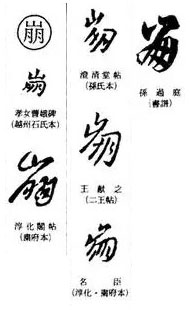 崩
崩
孝女曹娥碑
(越州石氏本)
崩
淳化閣帖
(肅府本)
崩
澄清堂帖
(孫氏本)
崩
王献之
(二王帖)
崩
名臣
(淳化・肅府本)
崩
孫過庭
(書譜)